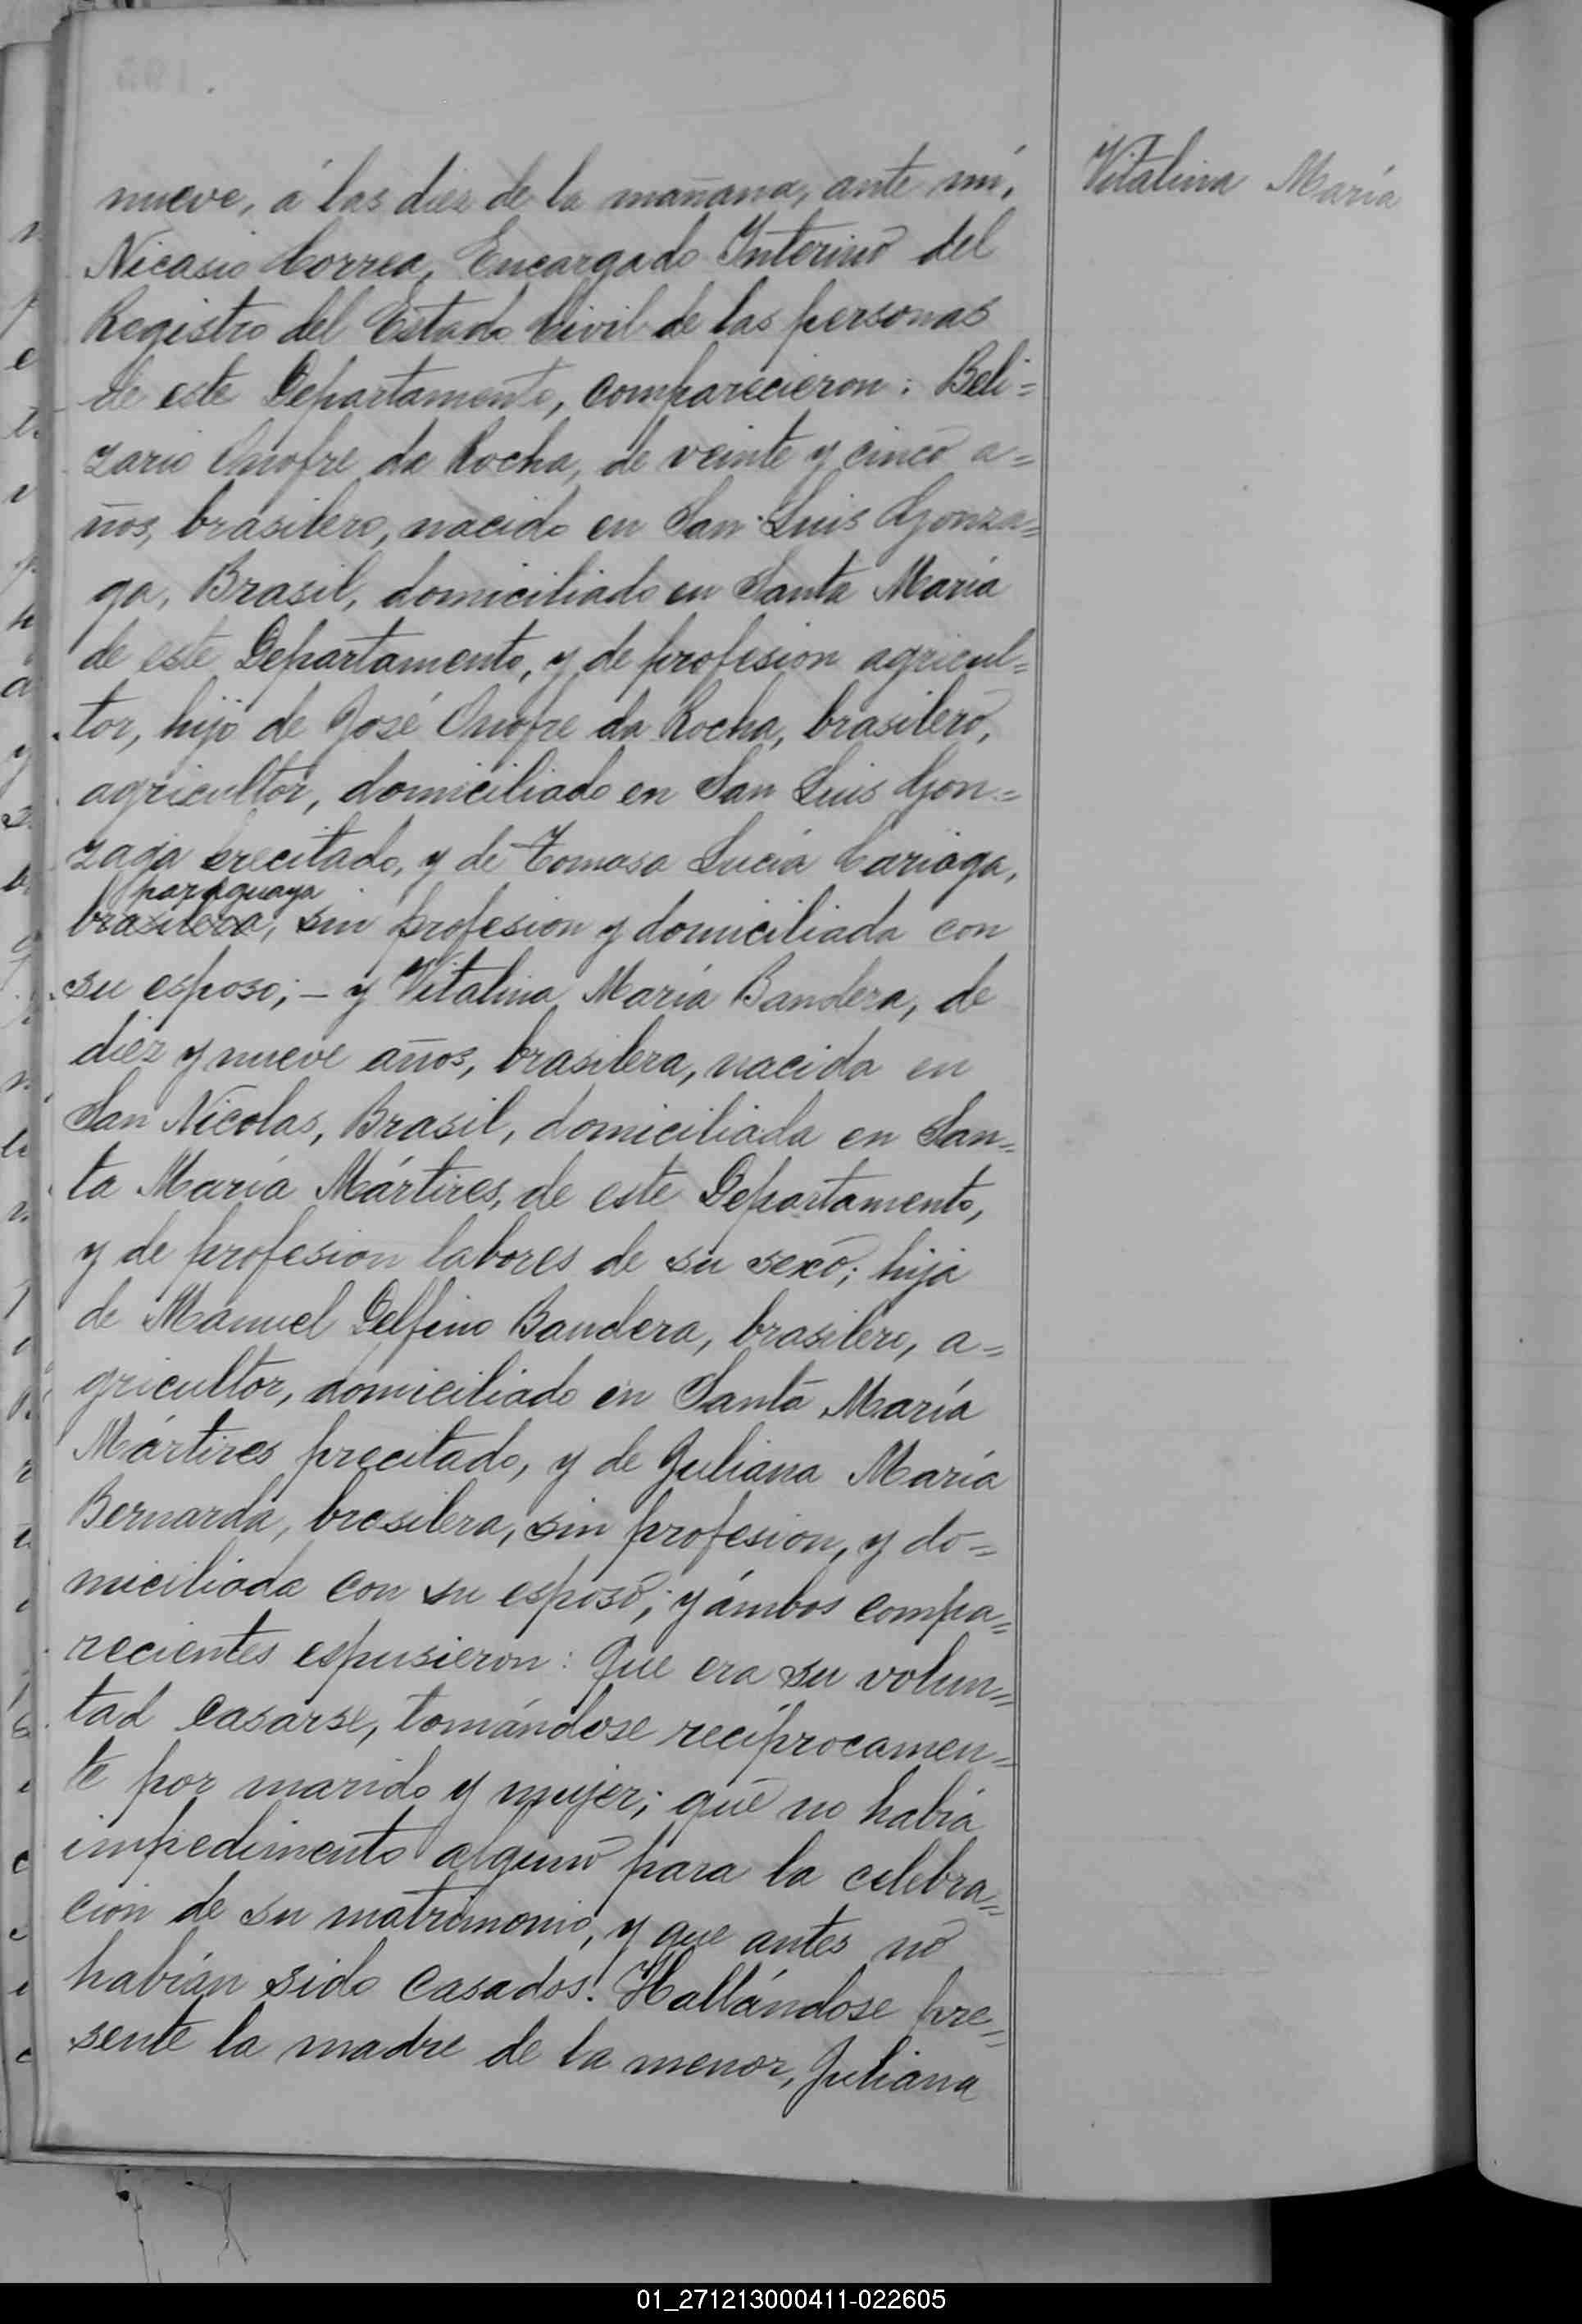 nueve, á las diez de la mañana, ante mí,
Nicasio Correa, Encargado Interino del
Registro del Estado Civil de las personas
de este Departamento, comparecieron: Beli=
zario Onofre da Rocha, de veinte y cinco a=
ños, brasilero, nacido en San Luis Gonza=
ga, Brasil, domiciliado en Santa María
de este Departamento, y de profesion agricul=
tor, hijo de José Onofre da Rocha, brasilero,
agricultor, domiciliado en San Luis Gon=
zaga precitado, y de Tomasa Lucía Cariaga,
paraguaya
brasilera, sin profesion y domiciliada con
su esposo; – y Vitalina María Bandera, de
diez y nueve años, brasilera, nacida en
San Nicolas, Brasil, domiciliada en San=
ta María Mártires, de este Departamento,
y de profesion labores de su sexo; hija
de Manuel Delfino Bandera, brasilero, a=
gricultor, domiciliado en Santa María
Mártires precitado, y de Juliana María
Bernarda, brasilera, sin profesion, y do=
miciliada con su esposo; y ámbos compa=
recientes espusieron: Que era su volun=
tad casarse, tomándose recíprocamen=
te por marido y mujer; que no había
impedimento alguno para la celebra=
cion de su matrimonio, y que antes no
habían sido casados. Hallándose pre=
sente la madre de la menor, Juliana
Vitalina María
01_271213000411-022605